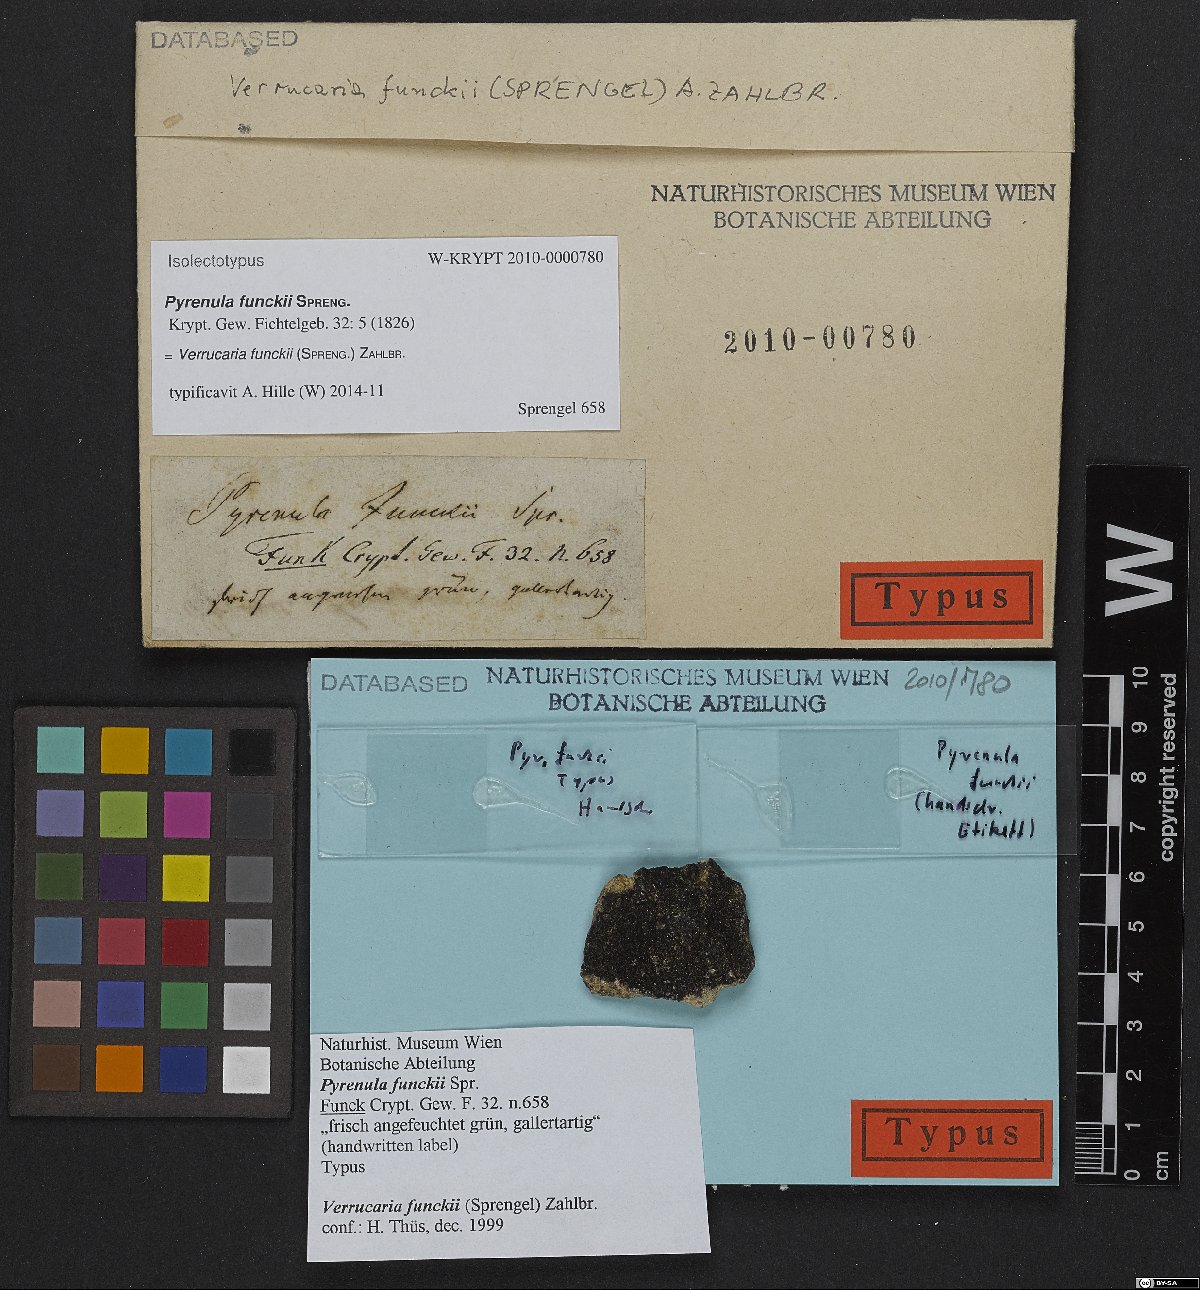 DATABASED
Verrucaria funckii (SPRENGEL) A. ZAHLBR.
NATURHISTORISCHES MUSEUM WIEN
BOTANISCHE ABTEILUNG
Isolectotypus
W-KRYPT 2010-0000780
Pyrenula funckii SPRENG.
Krypt. Gew. Fichtelgeb. 32: 5 (1826)
= Verrucaria funckii (SPRENG.) ZAHLBR.
typificavit A. Hille (W) 2014-11
Sprengel 658
2010-00780
Pyrenula Funckii Spr.
Funk Crypt. Gew. F. 32. n. 658
grün, gallertartig
Typus
DATABASED
NATURHISTORISCHES MUSEUM WIEN
BOTANISCHE ABTEILUNG
2010/780
Pyr. funcii
Typus
Pyrenula
funckii
(handschr.
Etikett)
Naturhist. Museum Wien
Botanische Abteilung
Pyrenula funckii Spr.
Funck Crypt. Gew. F. 32. n.658
„frisch angefeuchtet grün, gallertartig“
(handwritten label)
Typus
Verrucaria funckii (Sprengel) Zahlbr.
conf.: H. Thüs, dec. 1999
Typus
W
copyright reserved
10
9
8
7
6
5
4
3
2
1
0
cm
cc BY-SA